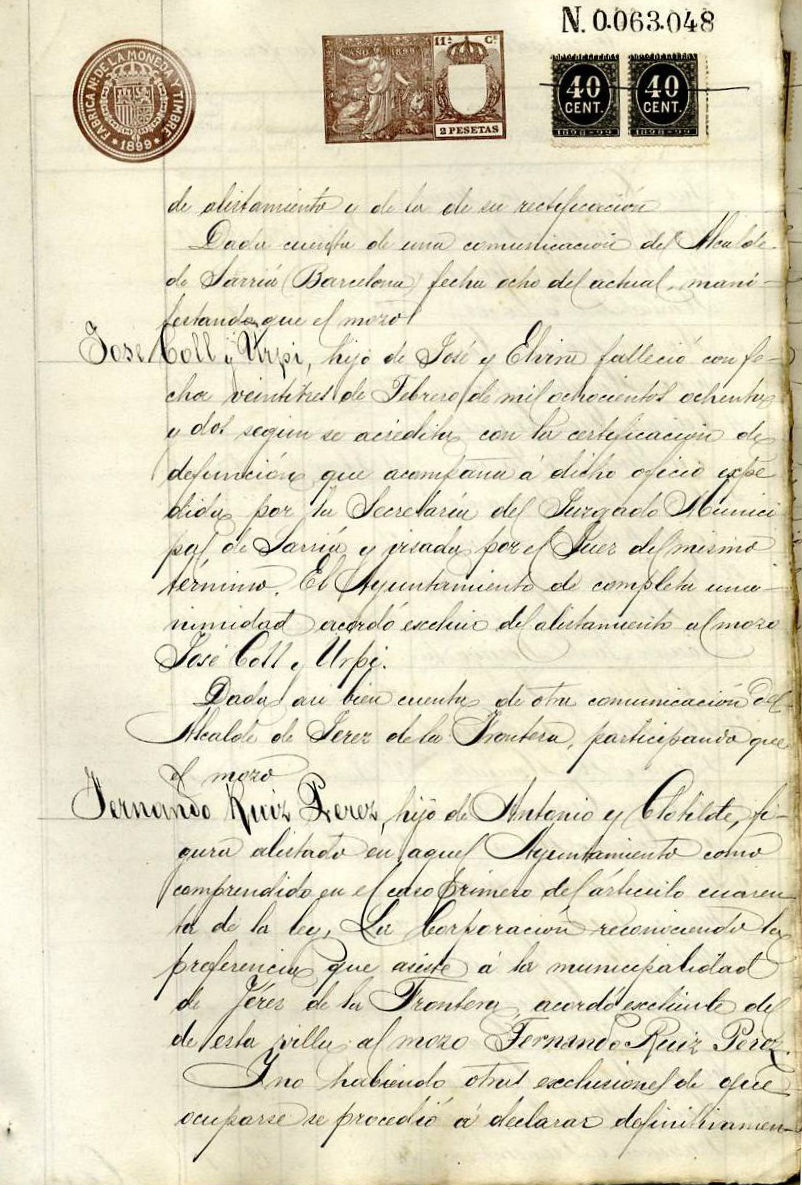 N. 0.063.048
FABRICA Nl. DE LA MONEDA Y TIMBRE
* 1899 *
AÑO 1899
11ª Cª
2 PESETAS
40 CENT. 1898-99
40 CENT. 1898-99
de alistamiento y de la de su rectificación
Dada cuenta de una comunicación del Alcalde
de Sarriá (Barcelona) fecha ocho del actual, mani-
festando que el mozo
José Coll y Urpi, hijo de José y Elvira falleció con fe-
cha veintitres de Febrero de mil ochocientos ochenta
y dos segun se acredita con la certificación de
defunción que acompaña á dicho oficio expe
dida por la Secretaría del Juzgado Munici
pal de Sarriá y visada por el Juez del mismo
término. El Ayuntamiento de completa una-
nimidad acordó excluir del alistamiento al mozo
José Coll y Urpi.
Dada asi bien cuenta de otra comunicación del
Alcalde de Jerez de la Frontera, participando que
el mozo
Fernando Ruiz Perez, hijo de Antonio y Clotilde, fi-
gura alistado en aquel Ayuntamiento como
comprendido en el caso primero del artículo cuaren
ta de la ley, La Corporación reconociendo la
preferencia que asiste á la municipalidad
de Jérez de la Frontera, acordó excluirle del
de esta villa al mozo Fernando Ruiz Perez.
Y no habiendo otras exclusiones de que
ocuparse se procedió á declarar definitivamen-